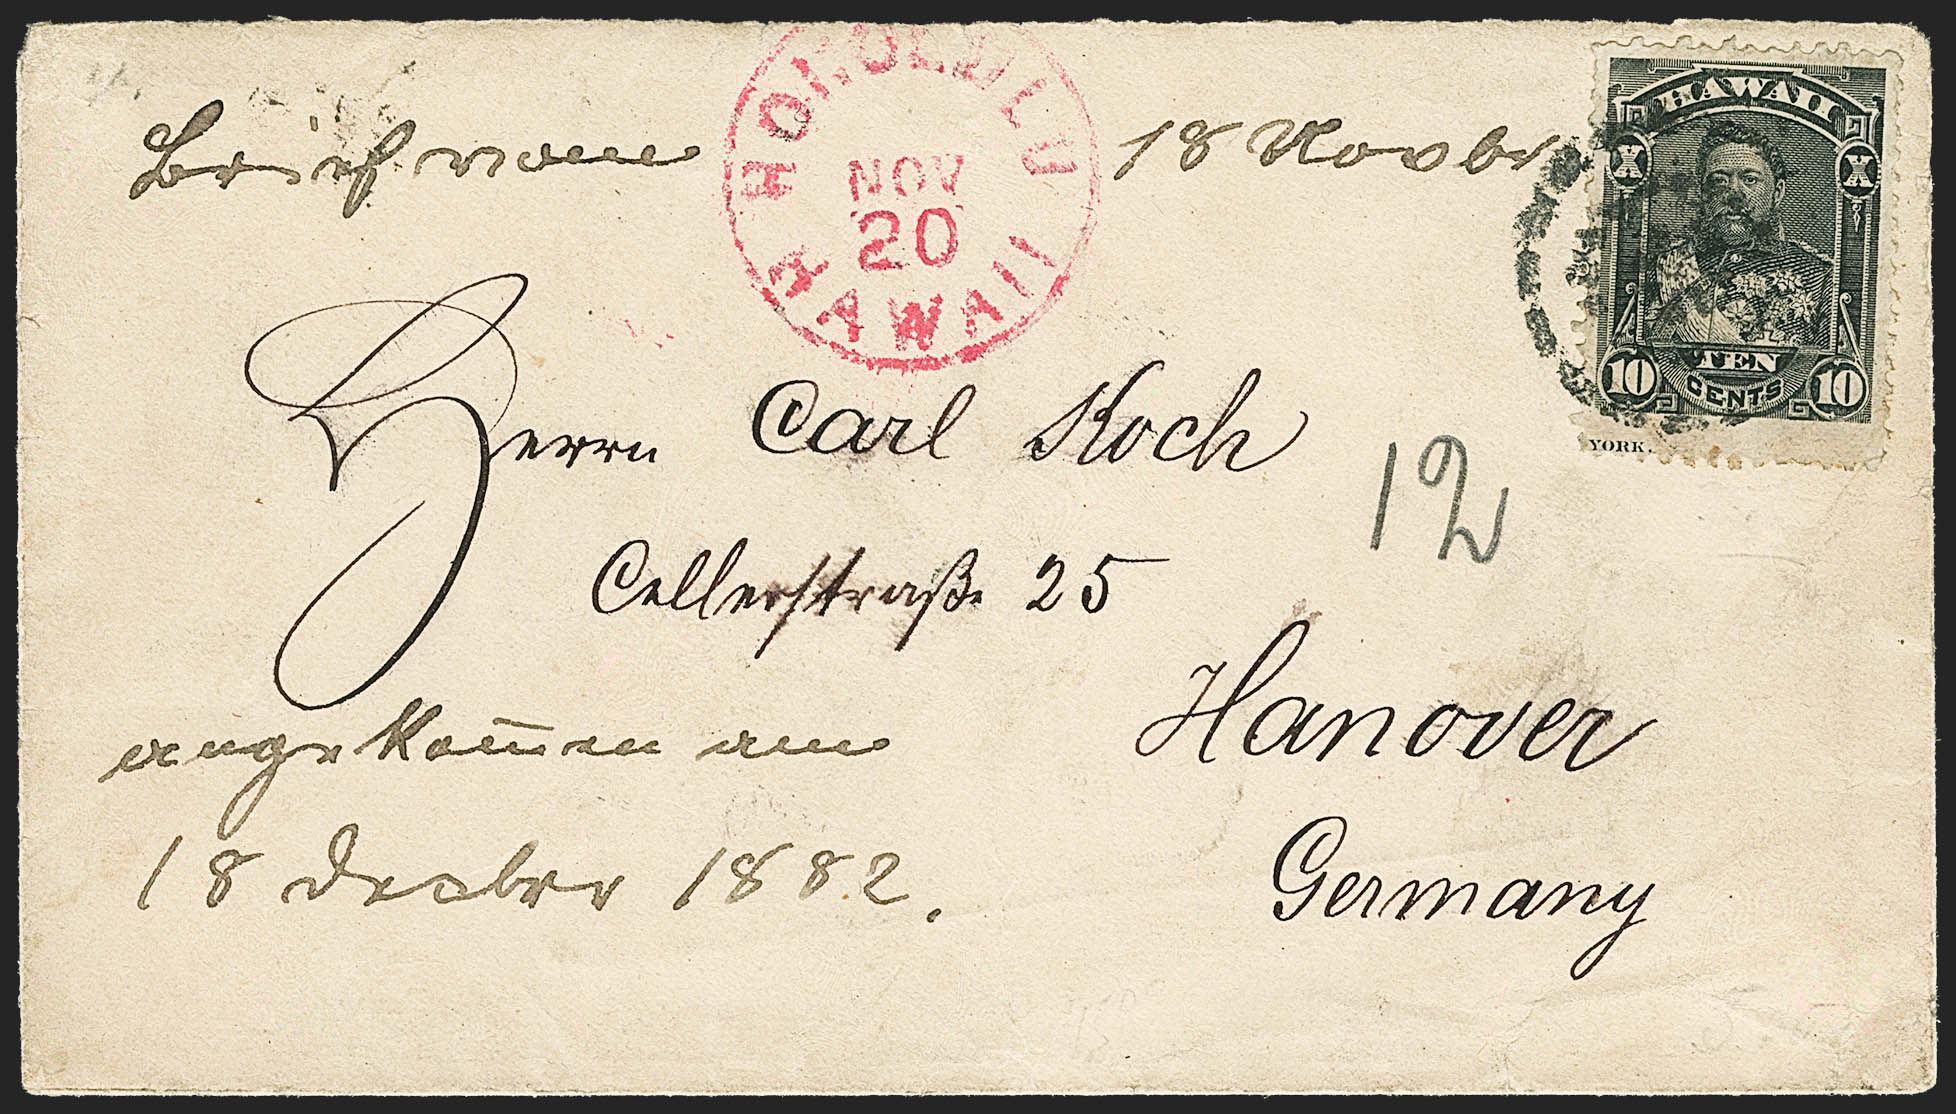 Brief vom 18 Novbr
HONOLULU
NOV
20
HAWAII
HAWAII
X X
10 TEN CENTS 10
YORK.
Herrn Carl Koch
12
Cellerstraße 25
Hanover
Germany
angekom̅en am
18 Decbr 1882.